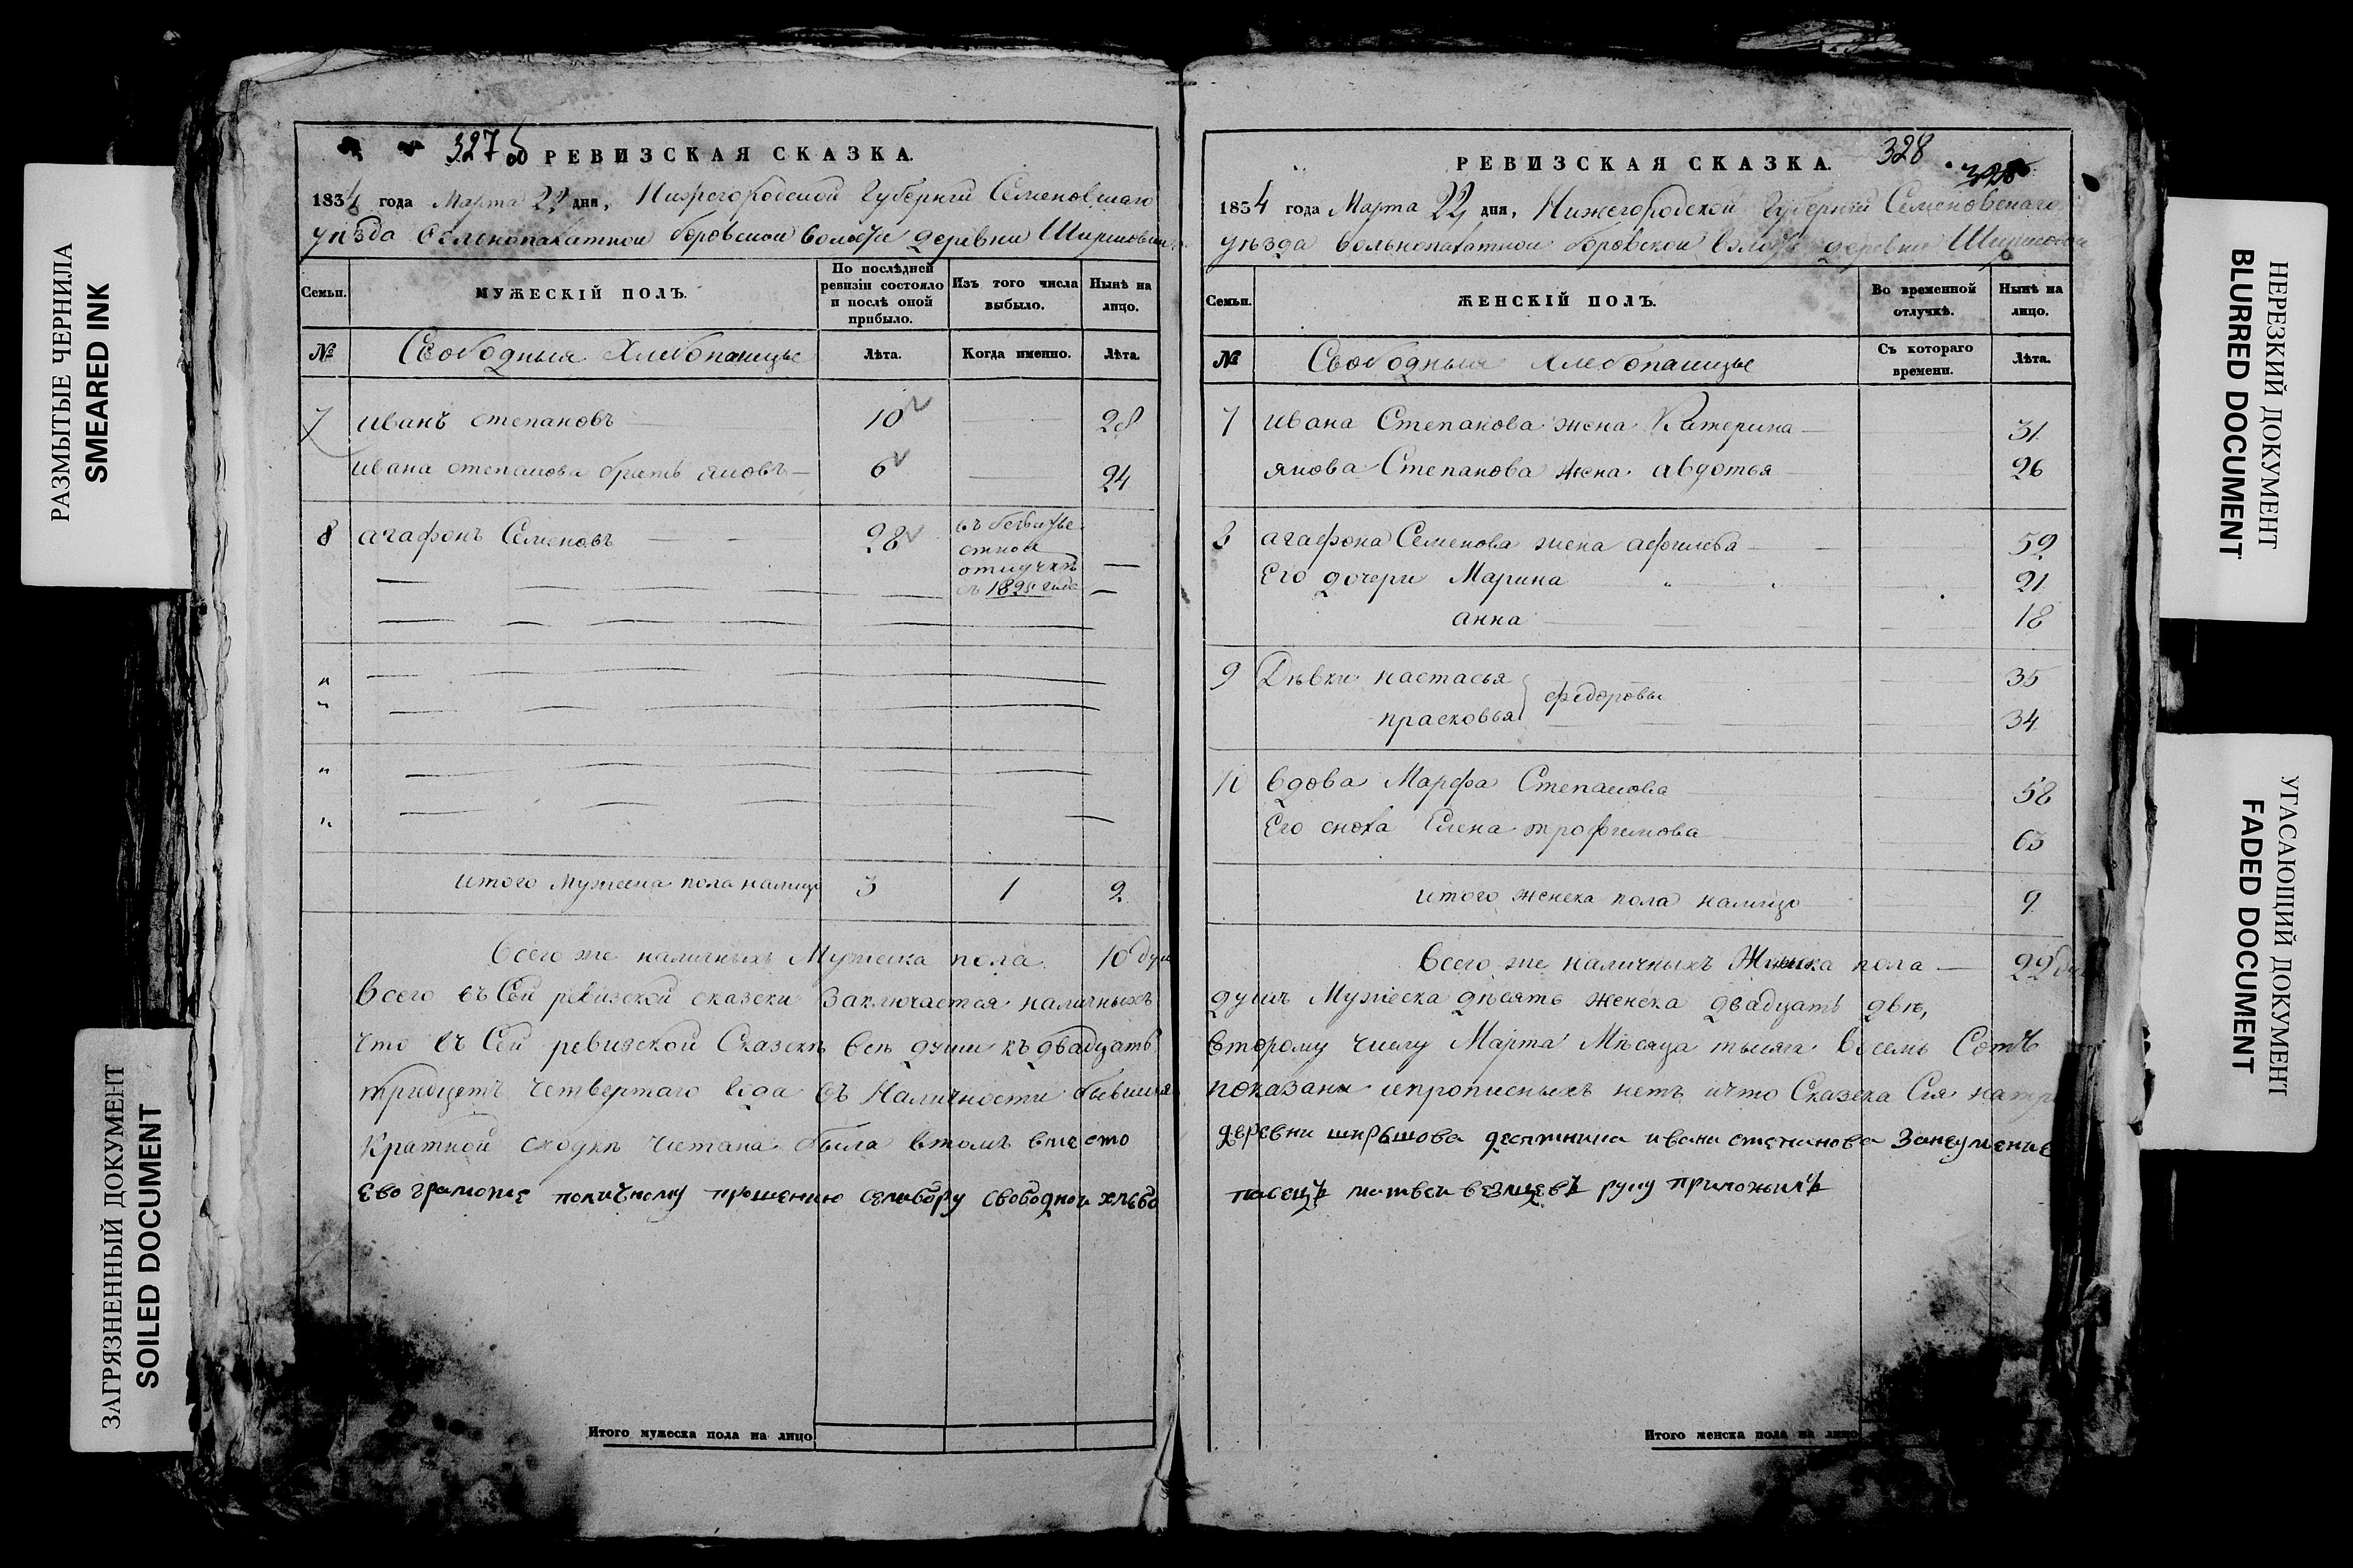 РАЗМЫТЫЕ ЧЕРНИЛА
SMEARED INK
ЗАГРЯЗНЕННЫЙ ДОКУМЕНТ
SOILED DOCUMENT
327 об
РЕВИЗСКАЯ СКАЗКА.
1834 года Марта 22 дня, Нижегородской Губернии Семеновскаго
уѣзда вольнопахатной боровской волости деревни
Семьи.
МУЖЕСКІЙ ПОЛЪ.
По послѣдней
ревизіи состояло
и послѣ оной
прибыло.
Изъ того числа
выбыло.
Нынѣ на
лицо.
№
Свободныя Хлебопашцы
Лѣта.
Когда именно.
Лѣта.
7 иванъ степановъ 10 28
ивана степанова братъ яковъ 6 24
8 агафонъ Семеновъ 28
отлучкѣ
съ 1825 года
итого мужеска пола налицо 3 1 2
всего же наличныхъ Мужеска пола 10 душ
всего въ Сей ревизской сказски заключается наличныхъ
что въ Сей ревизской Сказскѣ всѣ души къ двадцать
тридцеть четвертаго года въ Наличности бывшия
кратной сходкѣ читана была втомъ вместо
ево грамоте поличному прошению селибору свободной хлебо
Итого мужеска пола на лицо
РЕВИЗСКАЯ СКАЗКА.
328
328
1834 года Марта 22 дня, Нижегородской Губернии Семеновскаго
уѣзда вольнопахатной боровской волости деревни
Семьи.
ЖЕНСКІЙ ПОЛЪ.
Во временной
отлучкѣ.
Нынѣ на
лицо.
№
Свободныя Хлебопашцы
Съ котораго
времени.
Лѣта.
7 ивана Степанова жена Катерина 31
якова Степанова жена авдотья 26
8 агафона Семенова жена 59
Его дочери Марина 21
анна 18
9 Дѣвки настасья 35
федоровы
прасковья 34
10 вдова Марфа Степанова 58
Его сноха Елена трофимова 63
итого женска пола налицо 9
всего же наличныхъ Женска пола 22
душъ Мужеска десять женска двадцать двѣ,
второму числу Марта Мѣсяца тысяча восемь Сотъ
показаны ипрописныхъ нетъ ичто Сказска Сия
деревни ширышова десятника ивана степанова занеумение
пасецъ матвеи руку приложилъ
Итого женска пола на лицо
НЕРЕЗКИЙ ДОКУМЕНТ
BLURRED DOCUMENT
УГАСАЮЩИЙ ДОКУМЕНТ
FADED DOCUMENT